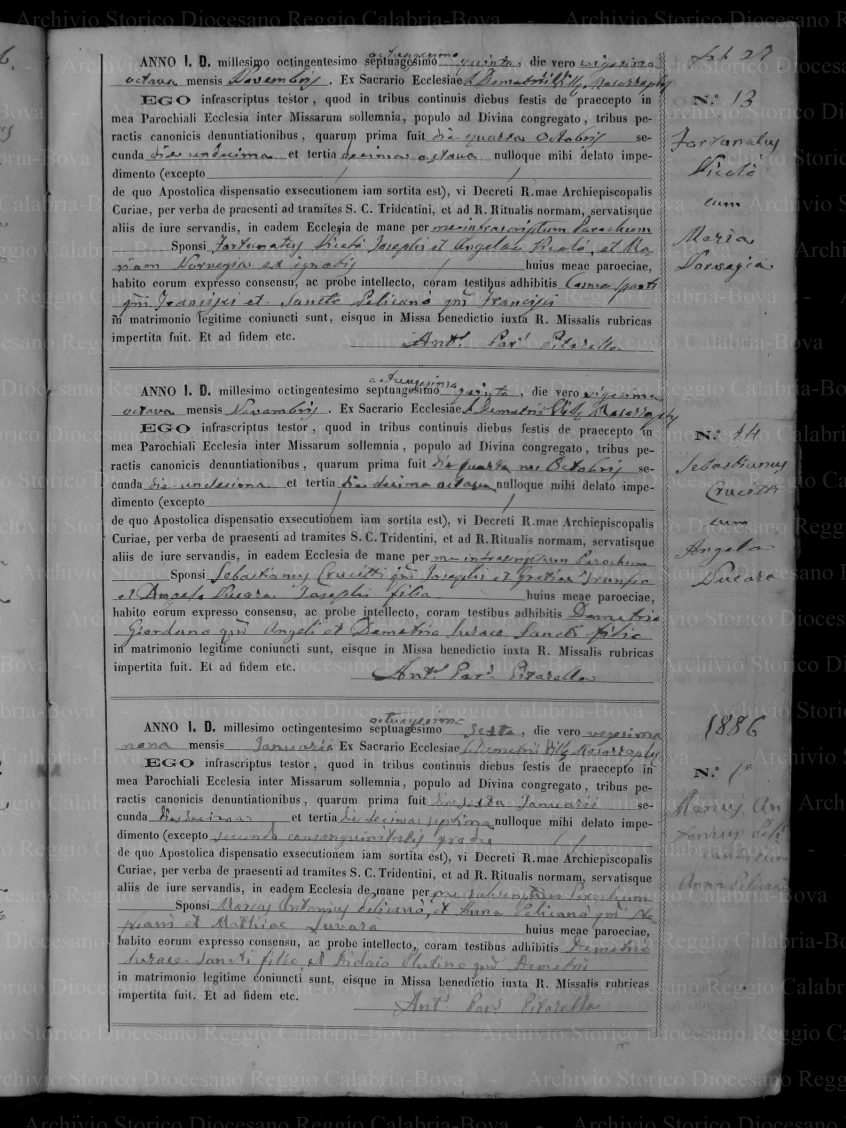 ANNO I. D. millesimo octingentesimo septuagesimo octuagesimo quinto, die vero vigesima
octava mensis Novembris. Ex Sacrario Ecclesiae S. Demetrii
EGO infrascriptus testor, quod in tribus continuis diebus festis de praecepto in
mea Parochiali Ecclesia inter Missarum sollemnia, populo ad Divina congregato, tribus pe-
ractis canonicis denuntiationibus, quarum prima fuit die quarta Octobris se-
cunda die undecima et tertia decima octava nulloque mihi delato impe-
dimento (excepto
de quo Apostolica dispensatio exsecutionem iam sortita est), vi Decreti R.mae Archiepiscopalis
Curiae, per verba de praesenti ad tramites S. C. Tridentini, et ad R. Ritualis normam, servatisque
aliis de iure servandis, in eadem Ecclesia de mane per me infrascriptum Parochum
Sponsi Fortunatus Nicolò Josephi et Angelae Nicolò, et Ma-
riam Norvegia ex ignotis huius meae paroeciae,
habito eorum expresso consensu, ac probe intellecto, coram testibus adhibitis Cosma
qm Francisci et Sancto Pelicanò qm Francisci
in matrimonio legitime coniuncti sunt, eisque in Missa benedictio iuxta R. Missalis rubricas
impertita fuit. Et ad fidem etc. Ant. Par. Pitarella
27
N.º 13
Fortunatus
Nicolò
cum
Maria
Norvegia
ANNO I. D. millesimo octingentesimo septuagesimo octuagesimo quinto, die vero vigesima
octava mensis Novembris. Ex Sacrario Ecclesiae S. Demetrii
EGO infrascriptus testor, quod in tribus continuis diebus festis de praecepto in
mea Parochiali Ecclesia inter Missarum sollemnia, populo ad Divina congregato, tribus pe-
ractis canonicis denuntiationibus, quarum prima fuit die quarta Octobris se-
cunda die undecima et tertia die decima octava nulloque mihi delato impe-
dimento (excepto
de quo Apostolica dispensatio exsecutionem iam sortita est), vi Decreti R.mae Archiepiscopalis
Curiae, per verba de praesenti ad tramites S. C. Tridentini, et ad R. Ritualis normam, servatisque
aliis de iure servandis, in eadem Ecclesia de mane per me infrascriptum Parochum
Sponsi Sebastianus Crucitti qm Josephi et Gratiae
et Angela Ducara Josephi filia huius meae paroeciae,
habito eorum expresso consensu, ac probe intellecto, coram testibus adhibitis Demetrio
Giordano qm Angeli et Demetrio Surace Sancti filio
in matrimonio legitime coniuncti sunt, eisque in Missa benedictio iuxta R. Missalis rubricas
impertita fuit. Et ad fidem etc. Ant. Par. Pitarella
N.º 14
Sebastianus
Crucitti
cum
Angela
Ducara
ANNO I. D. millesimo octingentesimo septuagesimo octuagesimo sexto, die vero vigesima
nona mensis Januarii Ex Sacrario Ecclesiae S. Demetrii
EGO infrascriptus testor, quod in tribus continuis diebus festis de praecepto in
mea Parochiali Ecclesia inter Missarum sollemnia, populo ad Divina congregato, tribus pe-
ractis canonicis denuntiationibus, quarum prima fuit die sexta Januarii se-
cunda die decima et tertia die decima septima nulloque mihi delato impe-
dimento (excepto secundo consanguinitatis gradu
de quo Apostolica dispensatio exsecutionem iam sortita est), vi Decreti R.mae Archiepiscopalis
Curiae, per verba de praesenti ad tramites S. C. Tridentini, et ad R. Ritualis normam, servatisque
aliis de iure servandis, in eadem Ecclesia de mane per me Parochum
Sponsi Marcus Antonius Pelicanò, et Anna Pelicanò qm
et Mathiae Surara huius meae paroeciae,
habito eorum expresso consensu, ac probe intellecto, coram testibus adhibitis Demetrio
Surace Sancti filio et Didaco qm Demetrii
in matrimonio legitime coniuncti sunt, eisque in Missa benedictio iuxta R. Missalis rubricas
impertita fuit. Et ad fidem etc. Ant. Par. Pitarella
1886
N.º 1º
Marcus An
tonius Peli
canò cum
Anna Pelicanò
Archivio Storico Diocesano Reggio Calabria-Bova